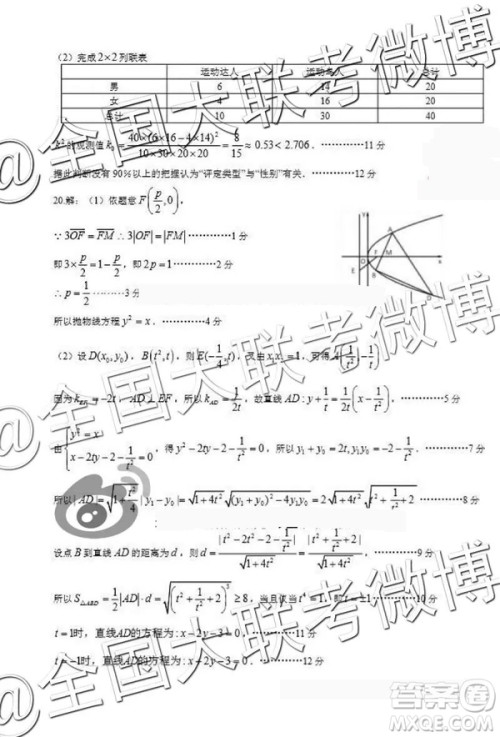 (2)完成2×2列联表
运动达人 总计
男 6 14 20
女 4 16 20
总计 10 30 40
K²的观测值k₀=40×(6×16−4×14)²/(10×30×20×20)=8/15≈0.53<2.706．…………11分
据此判断没有90%以上的把握认为“评定类型”与“性别”有关．…………12分
20.解：(1)依题意F(p/2,0)，
∵3OF=FM∴3|OF|=|FM|…………1分
即3×p/2=1−p/2，即2p=1…………2分
∴p=1/2………3分
所以抛物线方程y²=x．…………4分
(2)设D(x₀,y₀)，B(t²,t)，则E(−1/4,t)，又由x₁x₂=1，可得
因为k_EF=−2t，AD⊥EF，所以k_AD=1/2t，故直线AD:
…………5分
得y²−2ty−2−1/t²=0，所以y₁+y₀=2t,y₁y₀=−2−1/t²．…………7分
所以|AD|=
|y₁−y₀|=√(1+4t²)√((y₁+y₀)²−4y₁y₀)=2√(1+4t²)√(t²+1/t²+2)…………8分
设点B到直线AD的距离为d，则d=|t²−2t²−2−1/t²|/√(1+4t²)=|t²+1/t²+2|/√(1+4t²)，…………9分
所以S△ABD=1/2|AD|·d=√((t²+1/t²+2)³)≥8，当且仅当t⁴=1，即t=±1…………10分
t=1时，直线AD的方程为:x−2y−3=0，…………11分
t=−1时，直线AD的方程为:x+2y−3=0．…………12分
y
A
O
F
M
x
E
B
D
@全国大联考微博
@全国大联考微博
答案圈
MXQE.COM